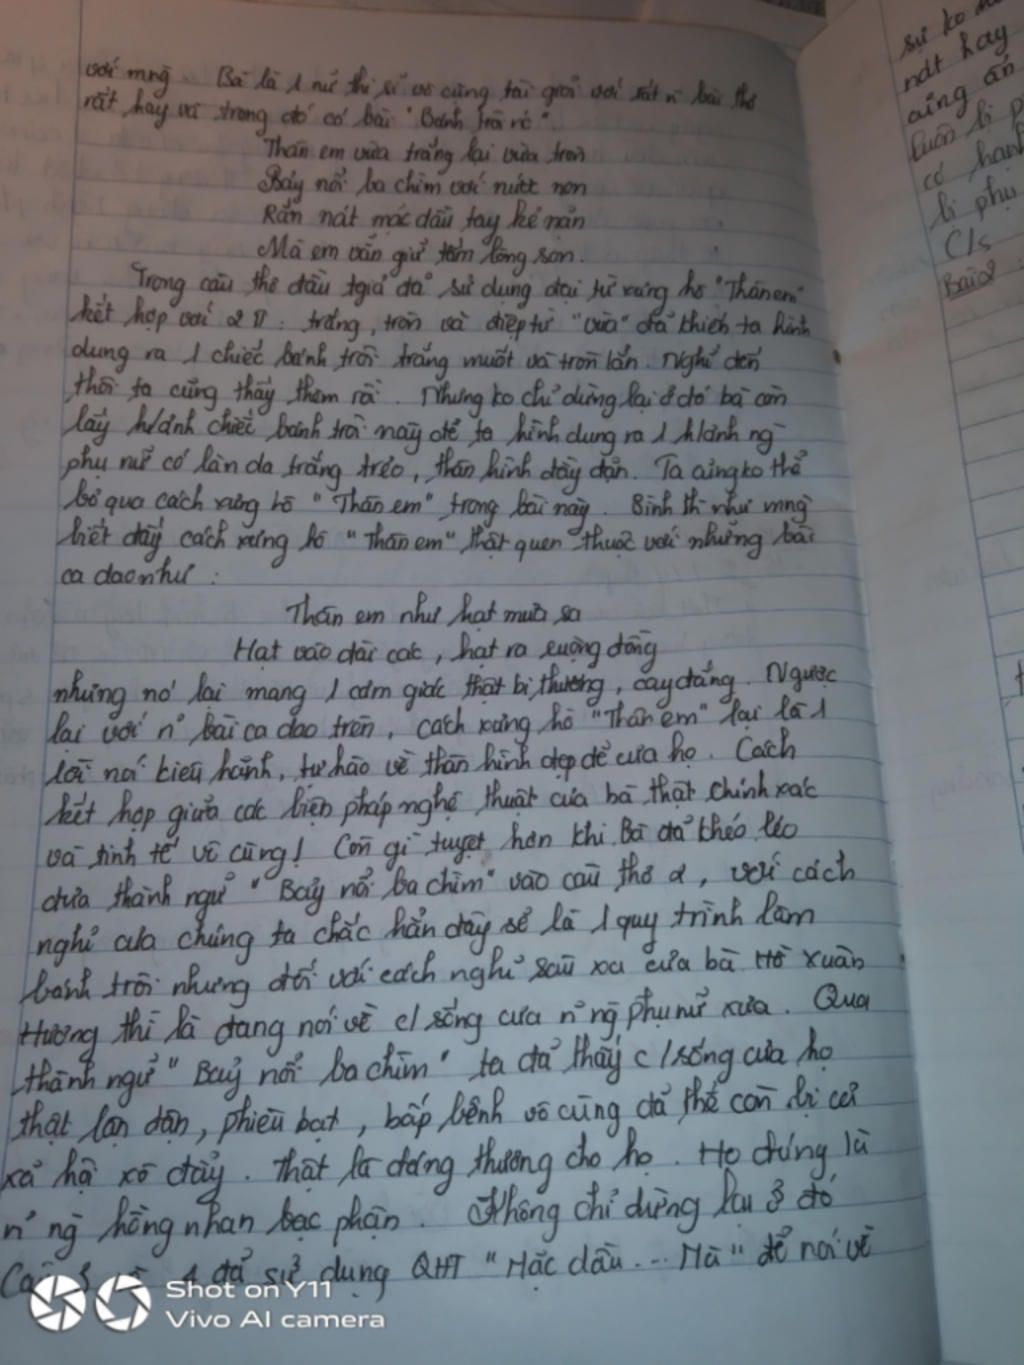 với mng. Bà là 1 nữ thi sĩ vô cùng tài giỏi với rất n` bài thơ
rất hay và trong đó có bài "Bánh trôi nc".
Thân em vừa trắng lại vừa tròn
Bảy nổi ba chìm với nước non
Rắn nát mặc dầu tay kẻ nặn
Mà em vẫn giữ tấm lòng son.
Trong câu thơ đầu tgiả đã sử dụng đại từ xưng hô "Thân em"
kết hợp với 2 TT: trắng, tròn và điệp từ "vừa" đã khiến ta hình
dung ra 1 chiếc bánh trôi trắng muốt và tròn lẳn. Nghĩ đến
thôi ta cũng thấy thèm rồi. Nhưng ko chỉ dừng lại ở đó bà còn
lấy h/ảnh chiếc bánh trôi này để ta hình dung ra 1 h/ảnh ng`
phụ nữ có làn da trắng trẻo, thân hình đầy đặn. Ta cũng ko thể
bỏ qua cách xưng hô "Thân em" trong bài này. Bình th` như mng
biết đấy cách xưng hô "Thân em" thật quen thuộc với những bài
ca dao như:
Thân em như hạt mưa sa
Hạt vào đài các, hạt ra ruộng đồng
nhưng nó lại mang 1 cảm giác thật bi thương, cay đắng. Ngược
lại với n~ bài ca dao trên, cách xưng hô "Thân em" lại là 1
lời nói kiêu hãnh, tự hào về thân hình đẹp đẽ của họ. Cách
kết hợp giữa các biện pháp nghệ thuật của bà thật chính xác
và tinh tế vô cùng! Còn gì tuyệt hơn khi Bà đã khéo léo
đưa thành ngữ "Bảy nổi ba chìm" vào câu thơ 2, với cách
nghĩ của chúng ta chắc hẳn đây sẽ là 1 quy trình làm
bánh trôi nhưng đối với cách nghĩ sâu xa của bà Hồ Xuân
Hương thì là đang nói về c/sống của n~ ng` phụ nữ xưa. Qua
thành ngữ "Bảy nổi ba chìm" ta đã thấy c/sống của họ
thật lận đận, phiêu bạt, bấp bênh vô cùng đã thế còn bị cả
xã hội xô đẩy. Thật là đáng thương cho họ. Họ đúng là
n~ ng` hồng nhan bạc phận. Không chỉ dừng lại ở đó
4 đã sử dụng QHT "Mặc dầu... Mà" để nói về
sự ko
nát hay
cũng
luôn bị
có
bị phụ
C/s
Bài 2:
Shot on Y11
Vivo AI camera